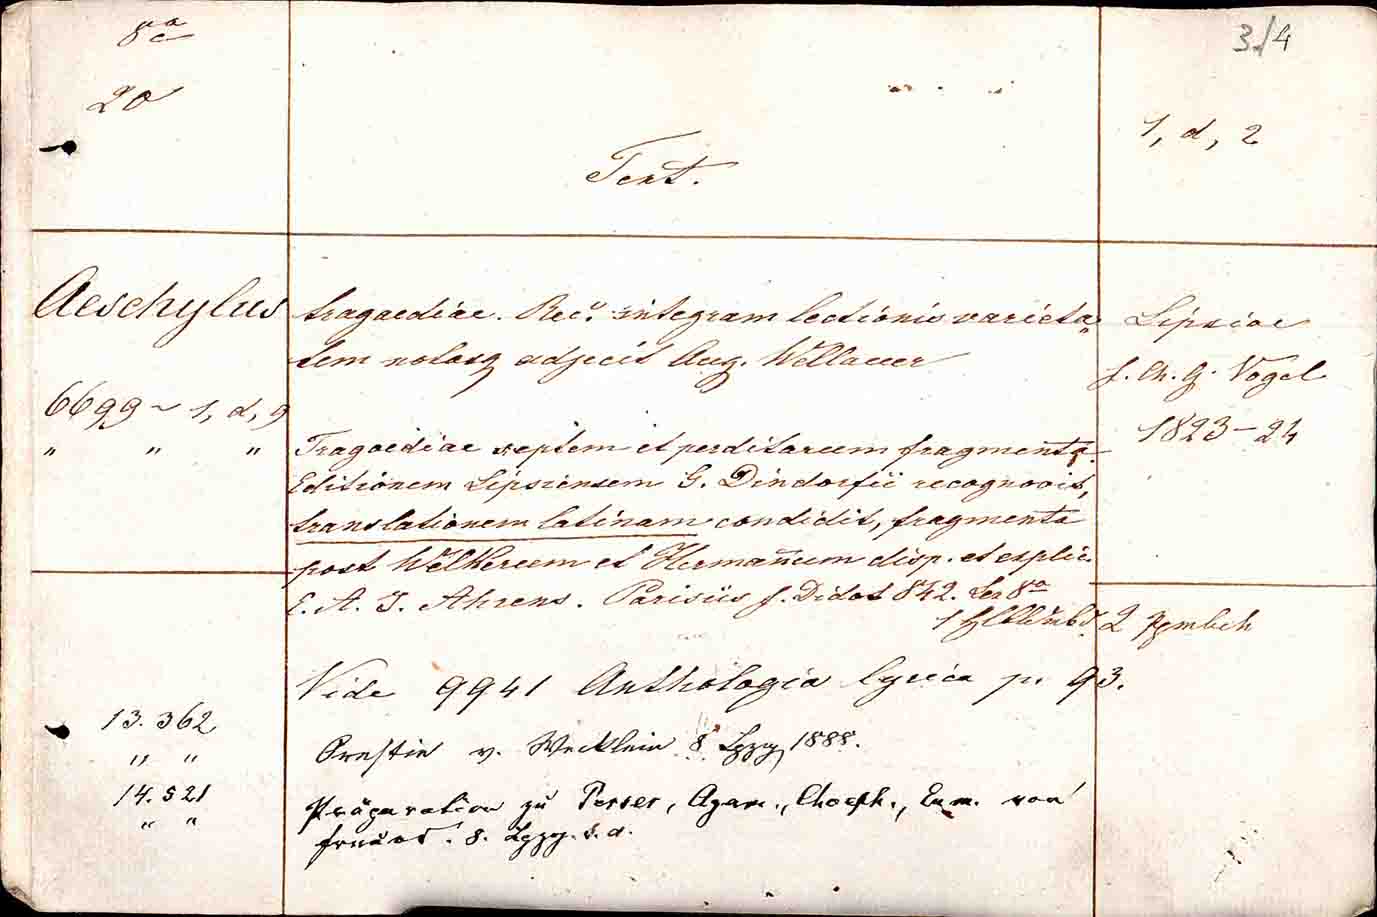 8°
3/4
20
1, d, 2
Text.
Aeschylus
tragoediae. Rec. integram lectionis varieta-
tem notasq adjecit Aug. Wellauer
Lipsiae
f. Ch. G. Vogel
1823-24
6699 ~ 1, d, 9
" " "
Tragoediae septem et perditarum fragmenta.
Editionem Lipsiensem G. Dindorfii recognovit,
translationem latinam condidit, fragmenta
post Welkerum et Hermanum disp. et explic.
E. A. I. Ahrens. Parisiis f. Didot 842. Lex 8°
2
Vide 9941 Anthologia lyrica p. 93.
13.362
" "
Orestie v. Wecklein 8. Lpzg 1888.
14.521
" "
Präparation zu Perser, Agam., Choeph., Eum. von
8. Lpzg. s. a.